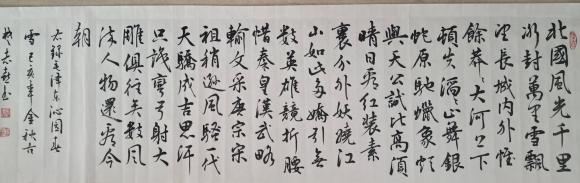 北國風光千里
冰封萬里雪飄
望長城内外惟
餘莽々大河上下
頓失滔々山舞銀
蛇原馳蠟象欲
與天公試比高須
晴日看红装素
裹分外妖嬈江
山如此多嬌引無
數英雄競折腰
惜秦皇漢武略
輸文采唐宗宋
祖稍遜風騷一代
天驕成吉思汗
只識彎弓射大
雕俱往矣數風
流人物還看今
朝
右録毛澤東沁園春
雪己亥年金秋吉